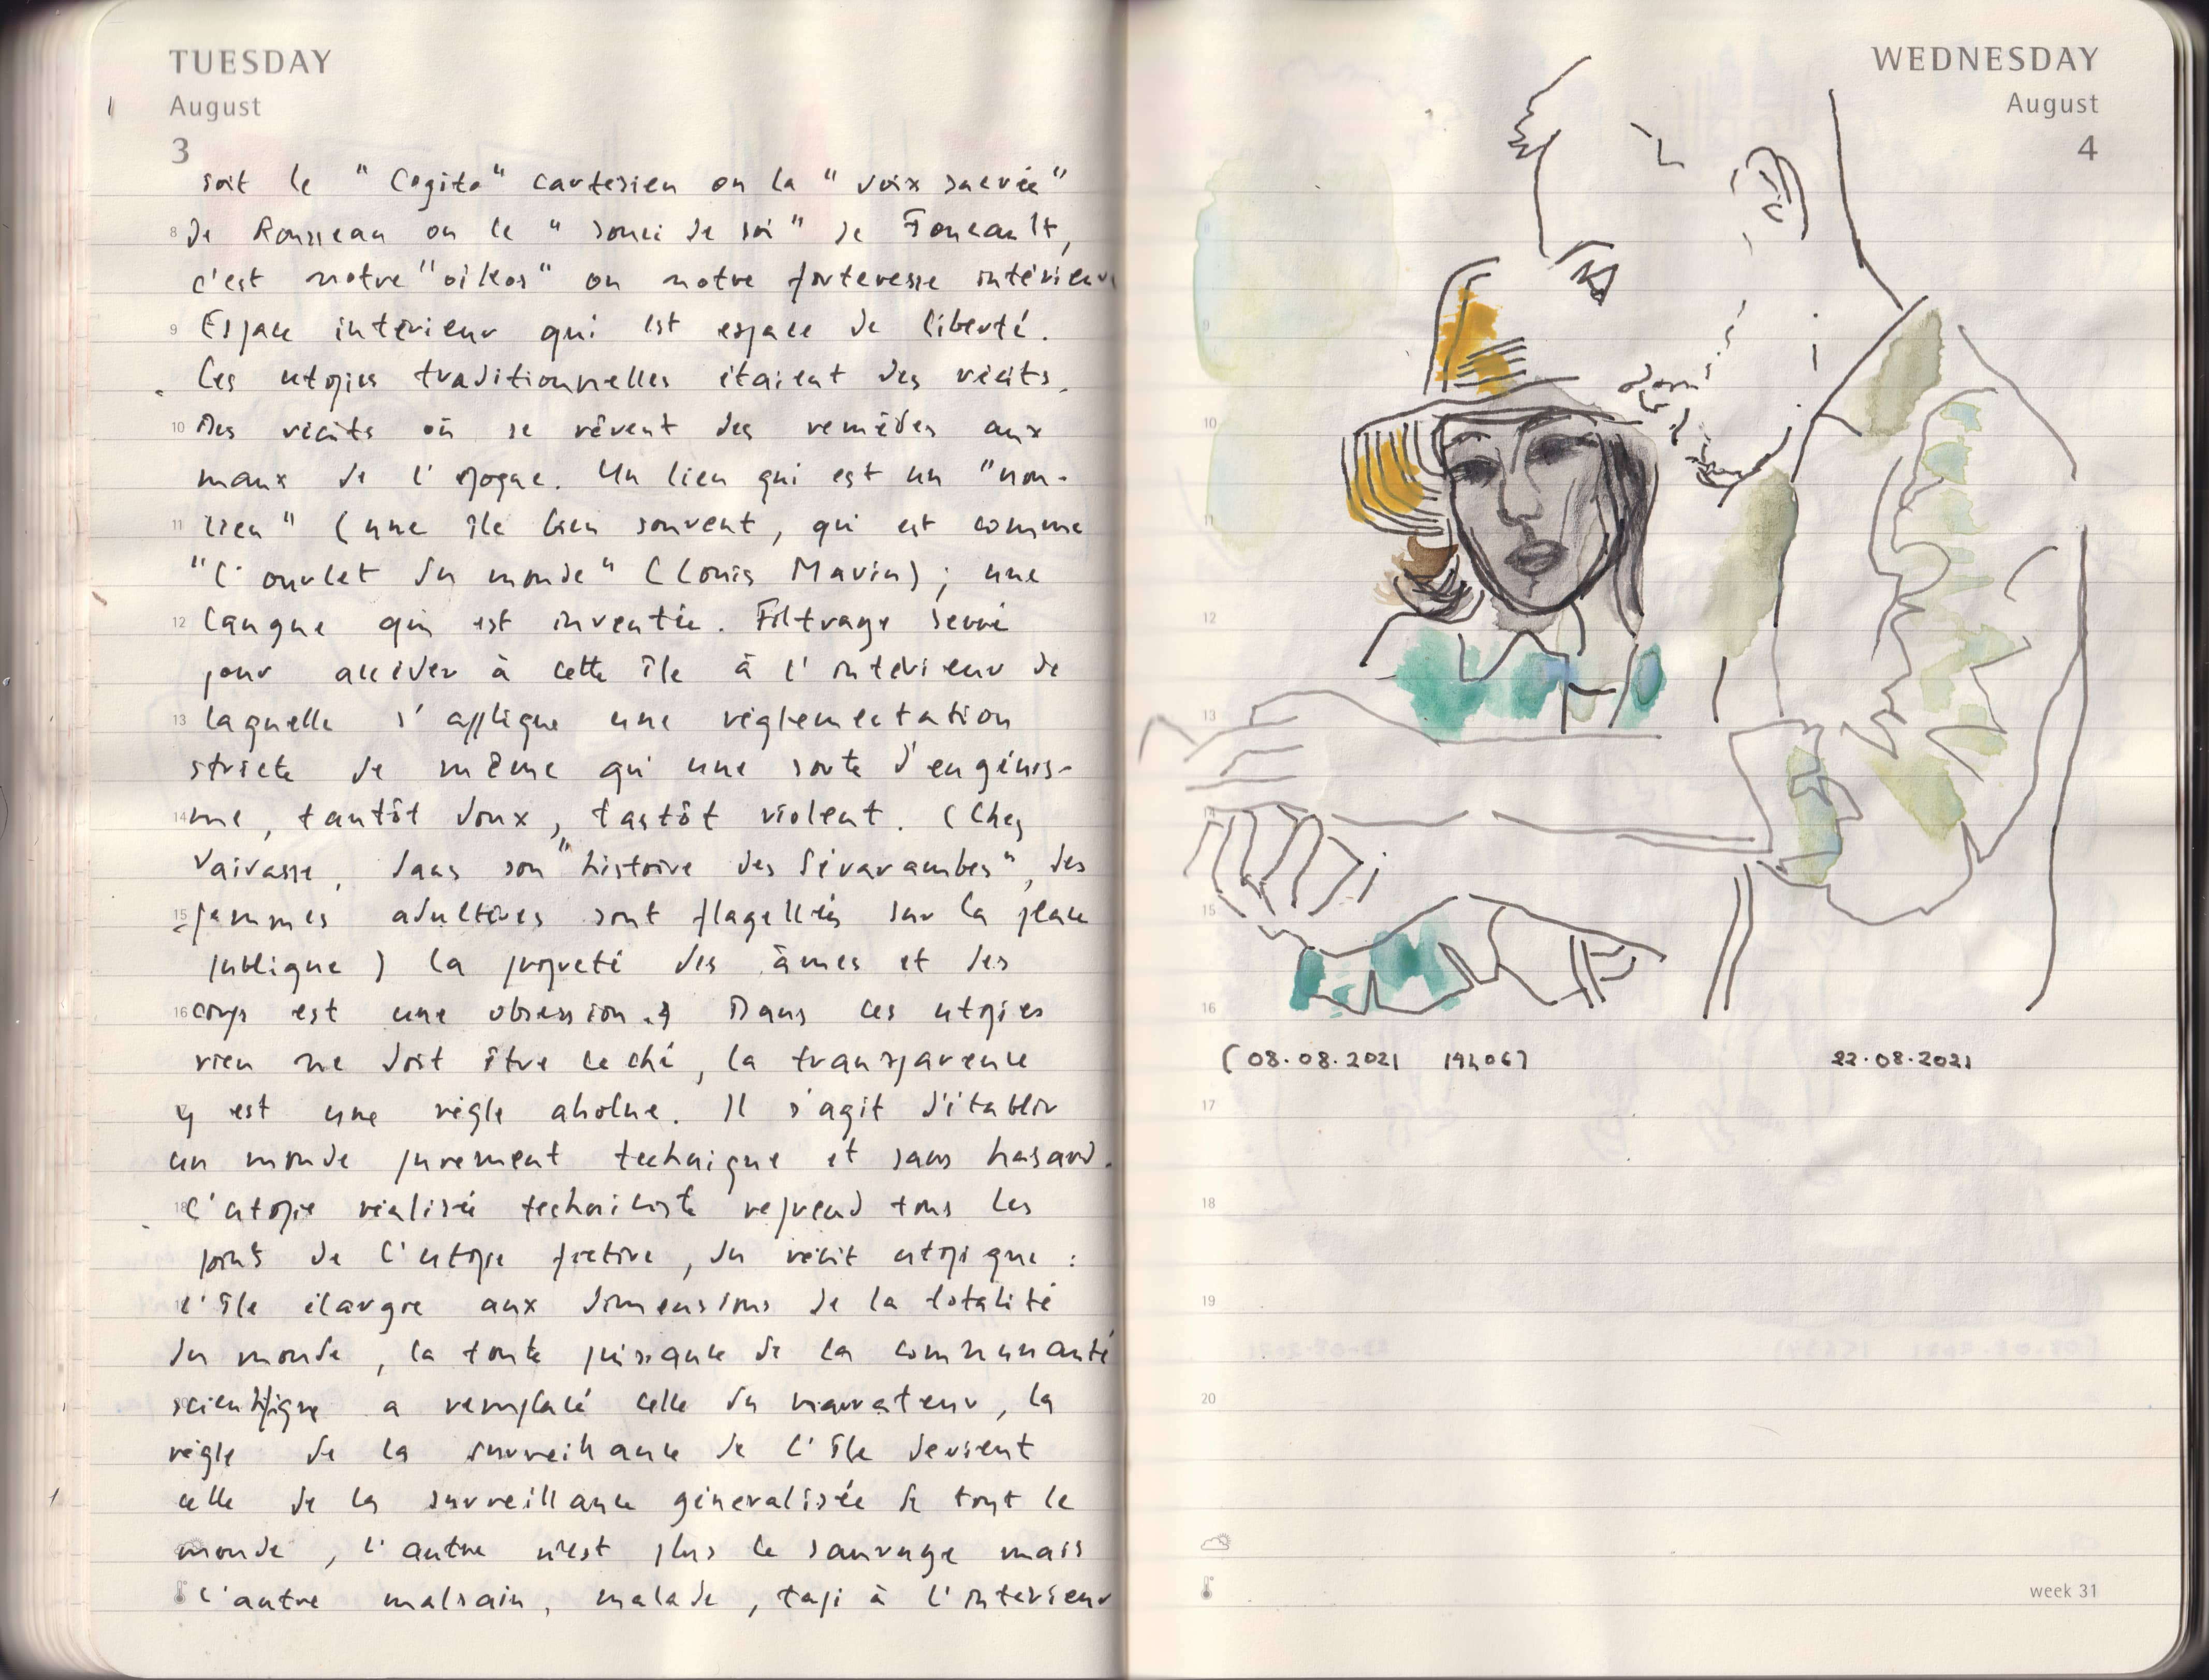 TUESDAY
August
3
soit le "Cogito" cartesien ou la "voix sacrée"
8 de Rousseau ou le "souci de soi" de Foucault,
c'est notre "oikos" ou notre forteresse intérieure
9 Espace intérieur qui est espace de liberté.
Les utopies traditionnelles étaient des récits.
10 Des récits où se rêvent des remèdes aux
maux de l'époque. Un lieu qui est un "non-
11 lieu" (une île bien souvent, qui est comme
"l'ourlet du monde" (Louis Marin); une
12 langue qui est inventée. Filtrage serré
pour accéder à cette île à l'intérieur de
13 laquelle s'applique une réglementation
stricte de même qu'une sorte d'eugénis-
14 me, tantôt doux, tantôt violent. (Chez
Vairasse, dans son "histoire des Sévarambes", des
15 femmes adultères sont flagellées sur la place
publique) la propreté des âmes et des
16 corps est une obsession. Dans ces utopies
rien ne doit être caché, la transparence
y est une règle absolue. Il s'agit d'établir
un monde purement technique et sans hasard.
18 L'utopie réalisée techniciste reprend tous les
points de l'utopie fictive, du récit utopique :
l'île élargie aux dimensions de la totalité
du monde, la toute puissance de la communauté
scientifique a remplacé celle du narrateur, la
règle de la surveillance de l'île devient
celle de la surveillance généralisée de tout le
monde, l'autre n'est plus le sauvage mais
l'autre malsain, malade, tapi à l'intérieur
WEDNESDAY
August
4
9
10
11
12
13
14
15
16
(08.08.2021 19h06) 22.08.2021
17
18
19
20
week 31